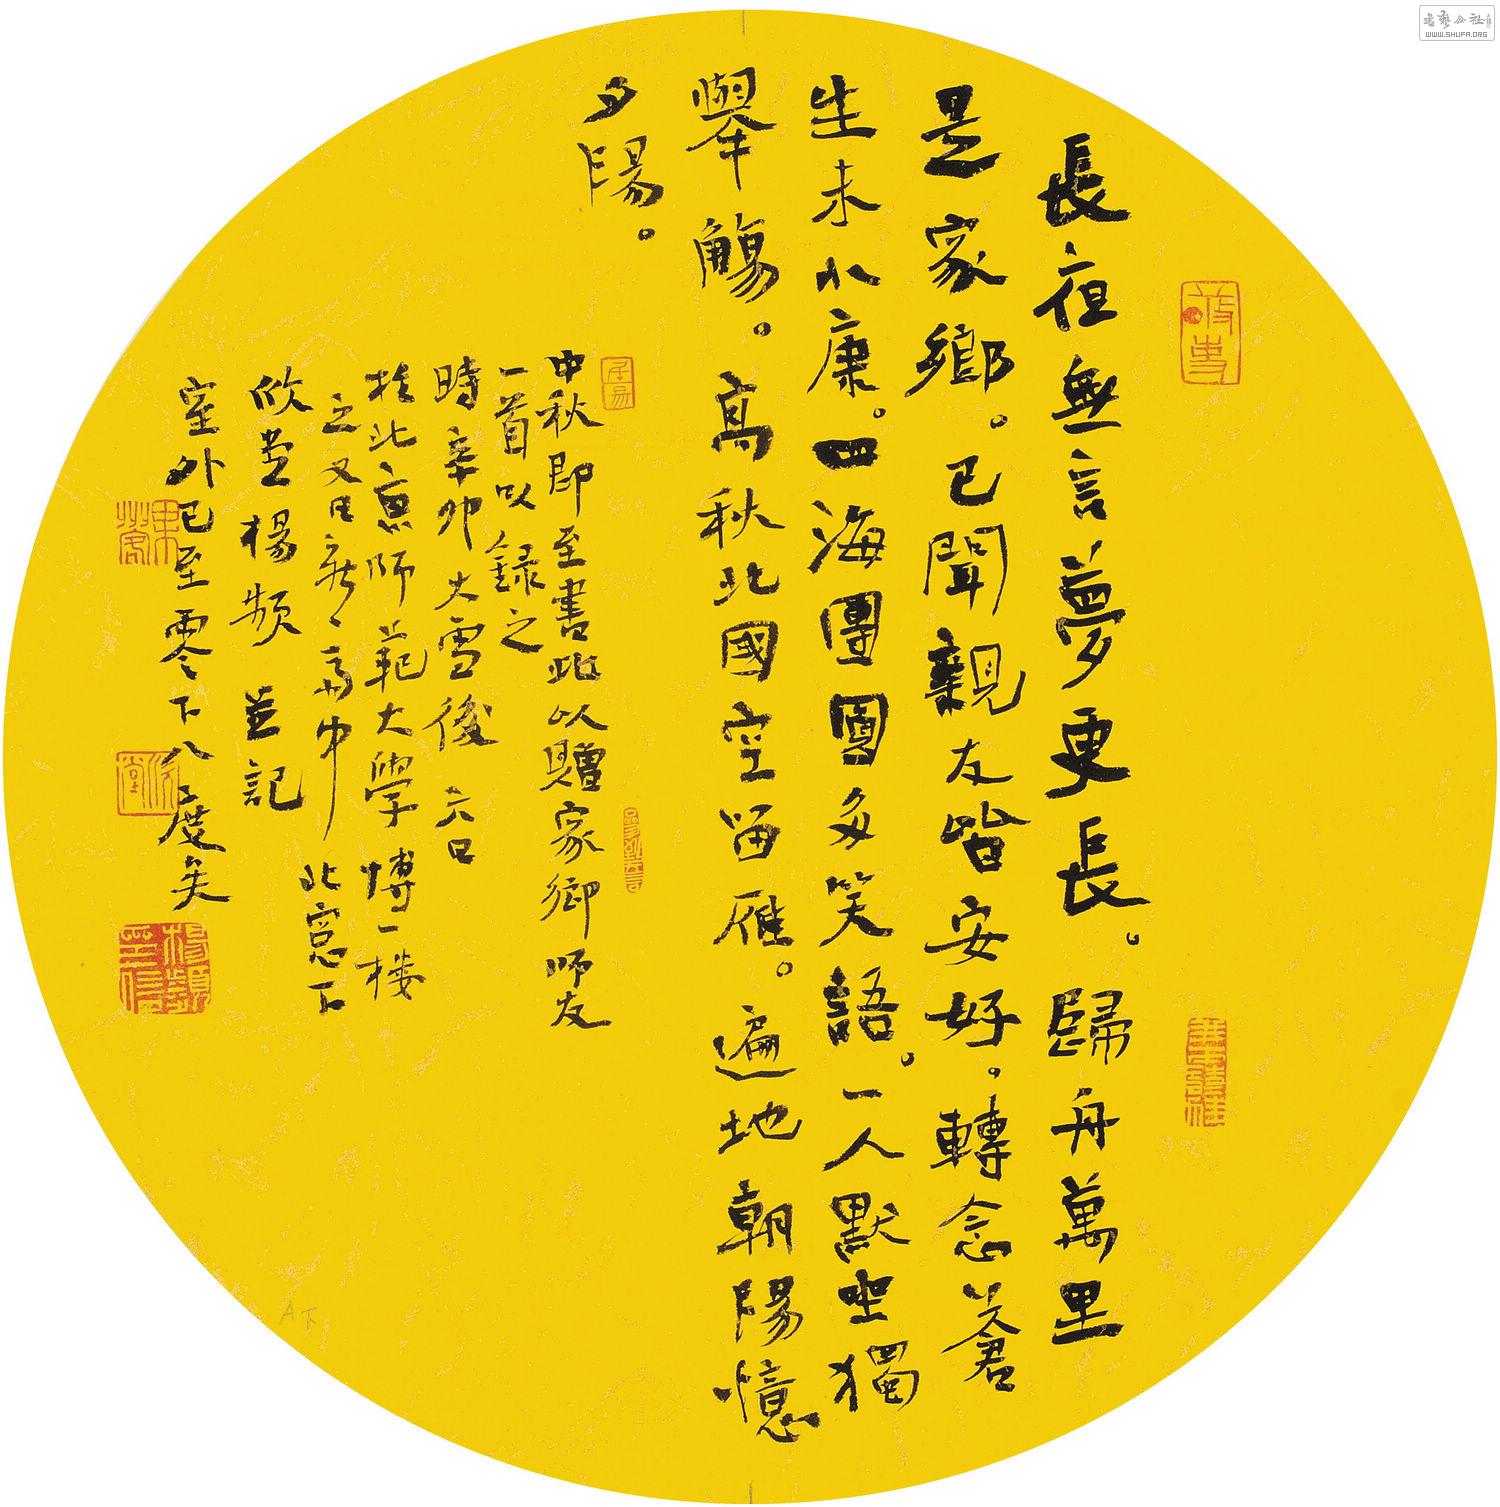 長夜無言夢更長。歸舟萬里
是家鄉。已聞親友皆安好。轉念蒼
生未小康。四海團圓多笑語。一人默坐獨
舉觴。高秋北國空留雁。遍地朝陽憶
夕陽。
中秋即至書此以贈家鄉師友
一首以錄之
時辛卯大雪後六日
於北京師範大學博一樓
之又日新新齋中 北窗下
攸堂楊頻 並記
室外已至零下八度矣
楊頻
印信
WWW.SHUFA.ORG
A下